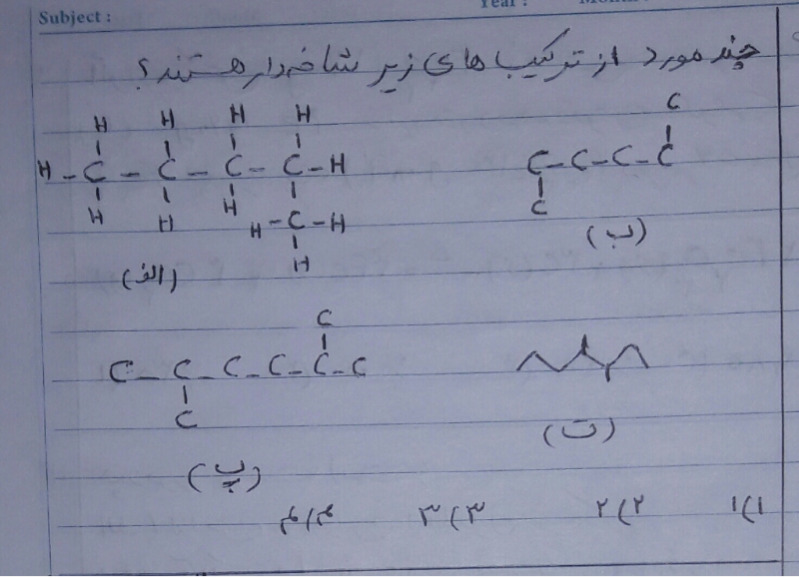 Subject :
Year :
چند مورد از ترکیب های زیر شاخه دار هستند؟
H H H H
H - C - C - C - C - H
H H H H - C - H
H
(الف)
C
C - C - C - C
C
(ب)
C
C - C - C - C - C - C
C
(پ)
(ت)
۱) ۱ ۲) ۲ ۳) ۳ ۴) ۴